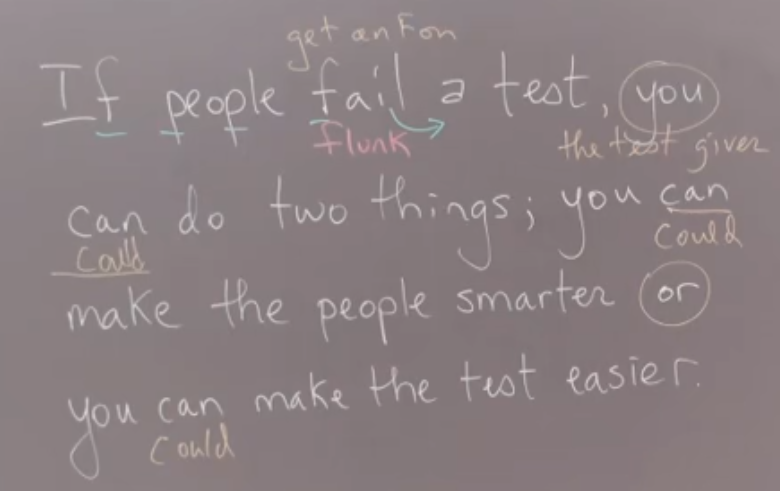 get an F on
If people fail a test, you
flunk the test giver
can do two things; you can
could could
make the people smarter or
you can make the test easier.
could